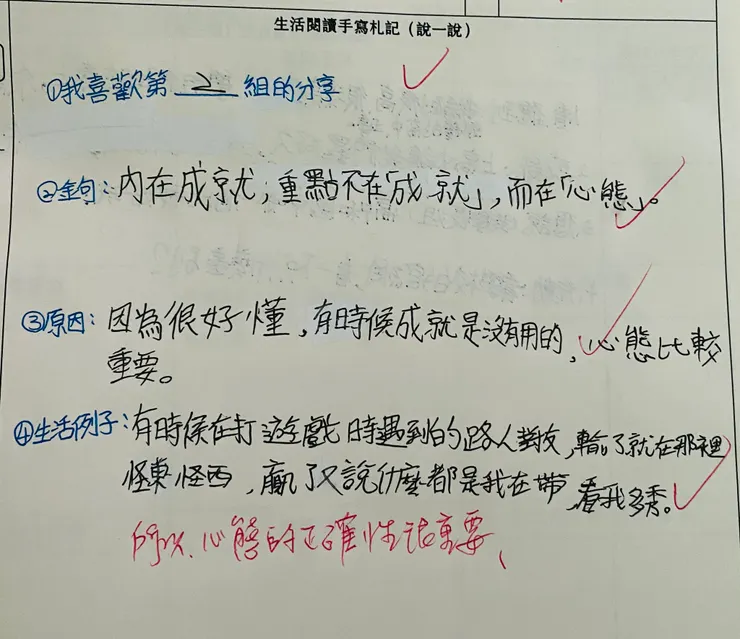 生活閱讀手寫札記（說一說）
①我喜歡第 2 組的分享
②金句：內在成就；重點不在「成就」，而在「心態」。
③原因：因為很好懂，有時候成就是沒有用的，心態比較
重要。
④生活例子：有時候在打遊戲時遇到的路人隊友，輸了就在那裡
怪東怪西，贏了又說什麼都是我在帶，看我多秀。
所以，心態的正確性很重要、